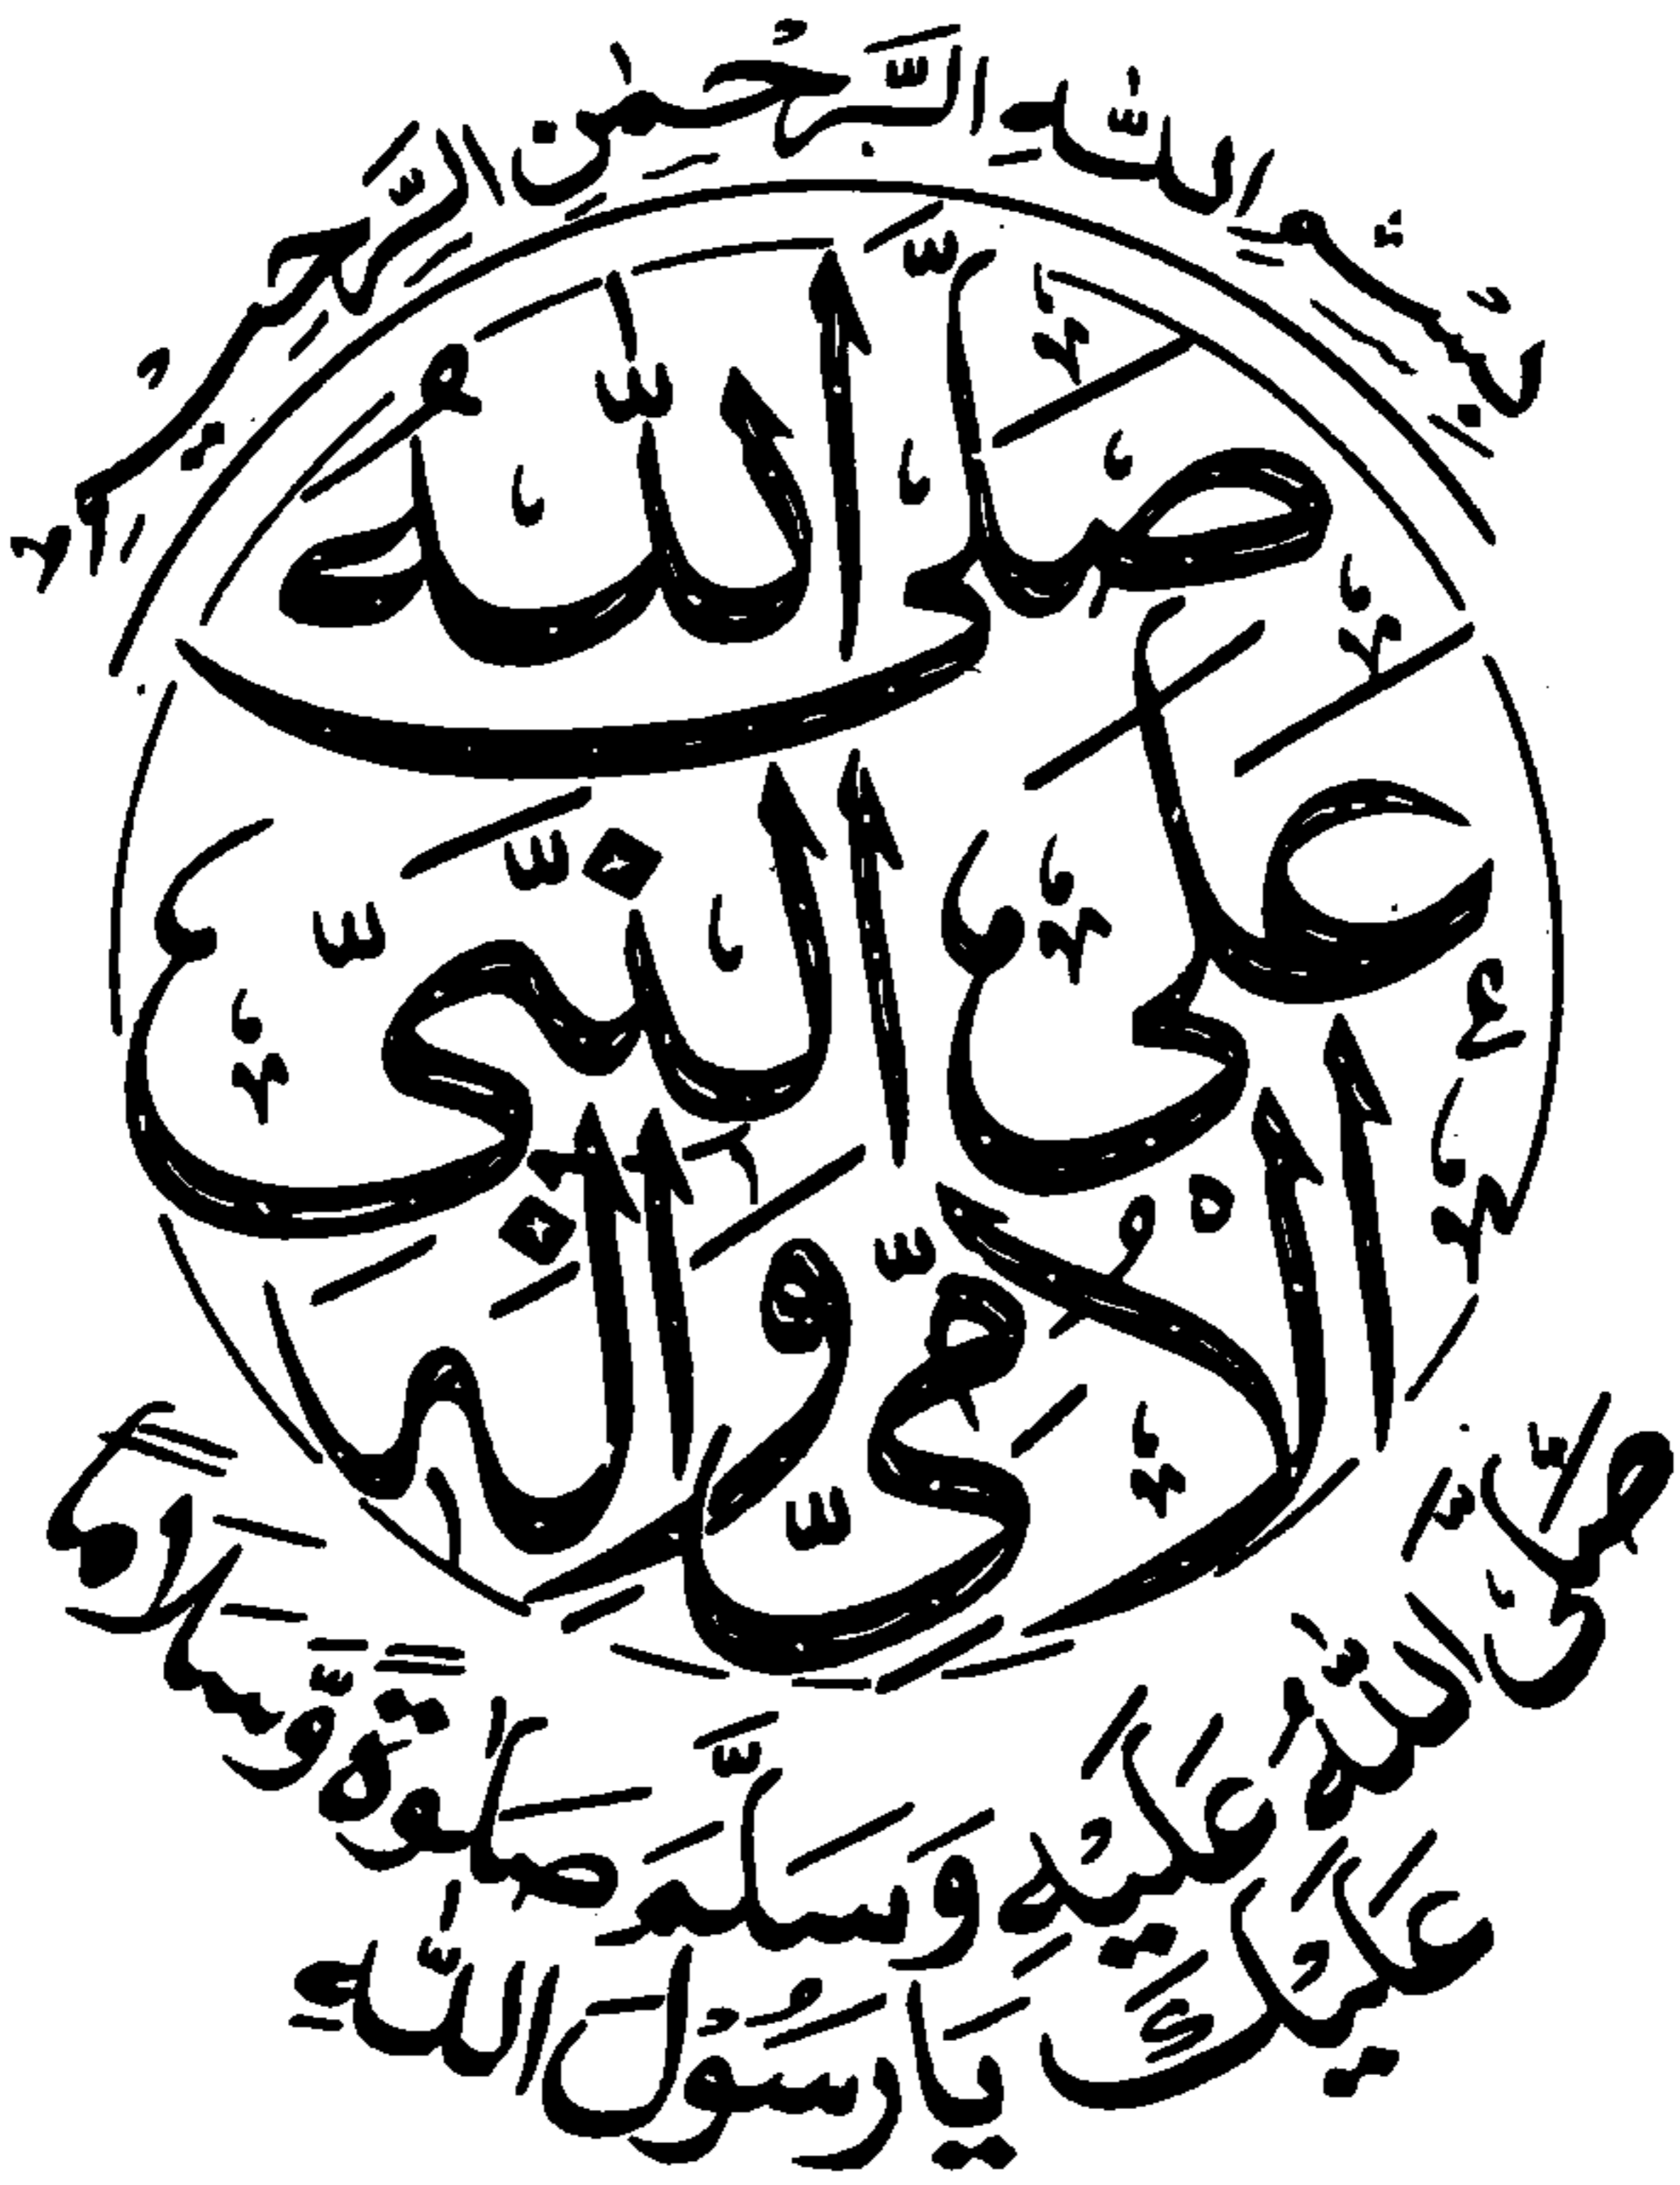 بِسْمِ اللّٰهِ الرَّحْمٰنِ الرَّحِيْمِ
صَلَّى اللّٰهُ
عَلَى النَّبِيِّ
الْاُمِّيِّ وَاٰلِهٖ
صَلَّى اللّٰهُ عَلَيْهِ وَسَلَّمَ صَلٰوةً وَّسَلَامًا
عَلَيْكَ يَا رَسُوْلَ اللّٰهِ